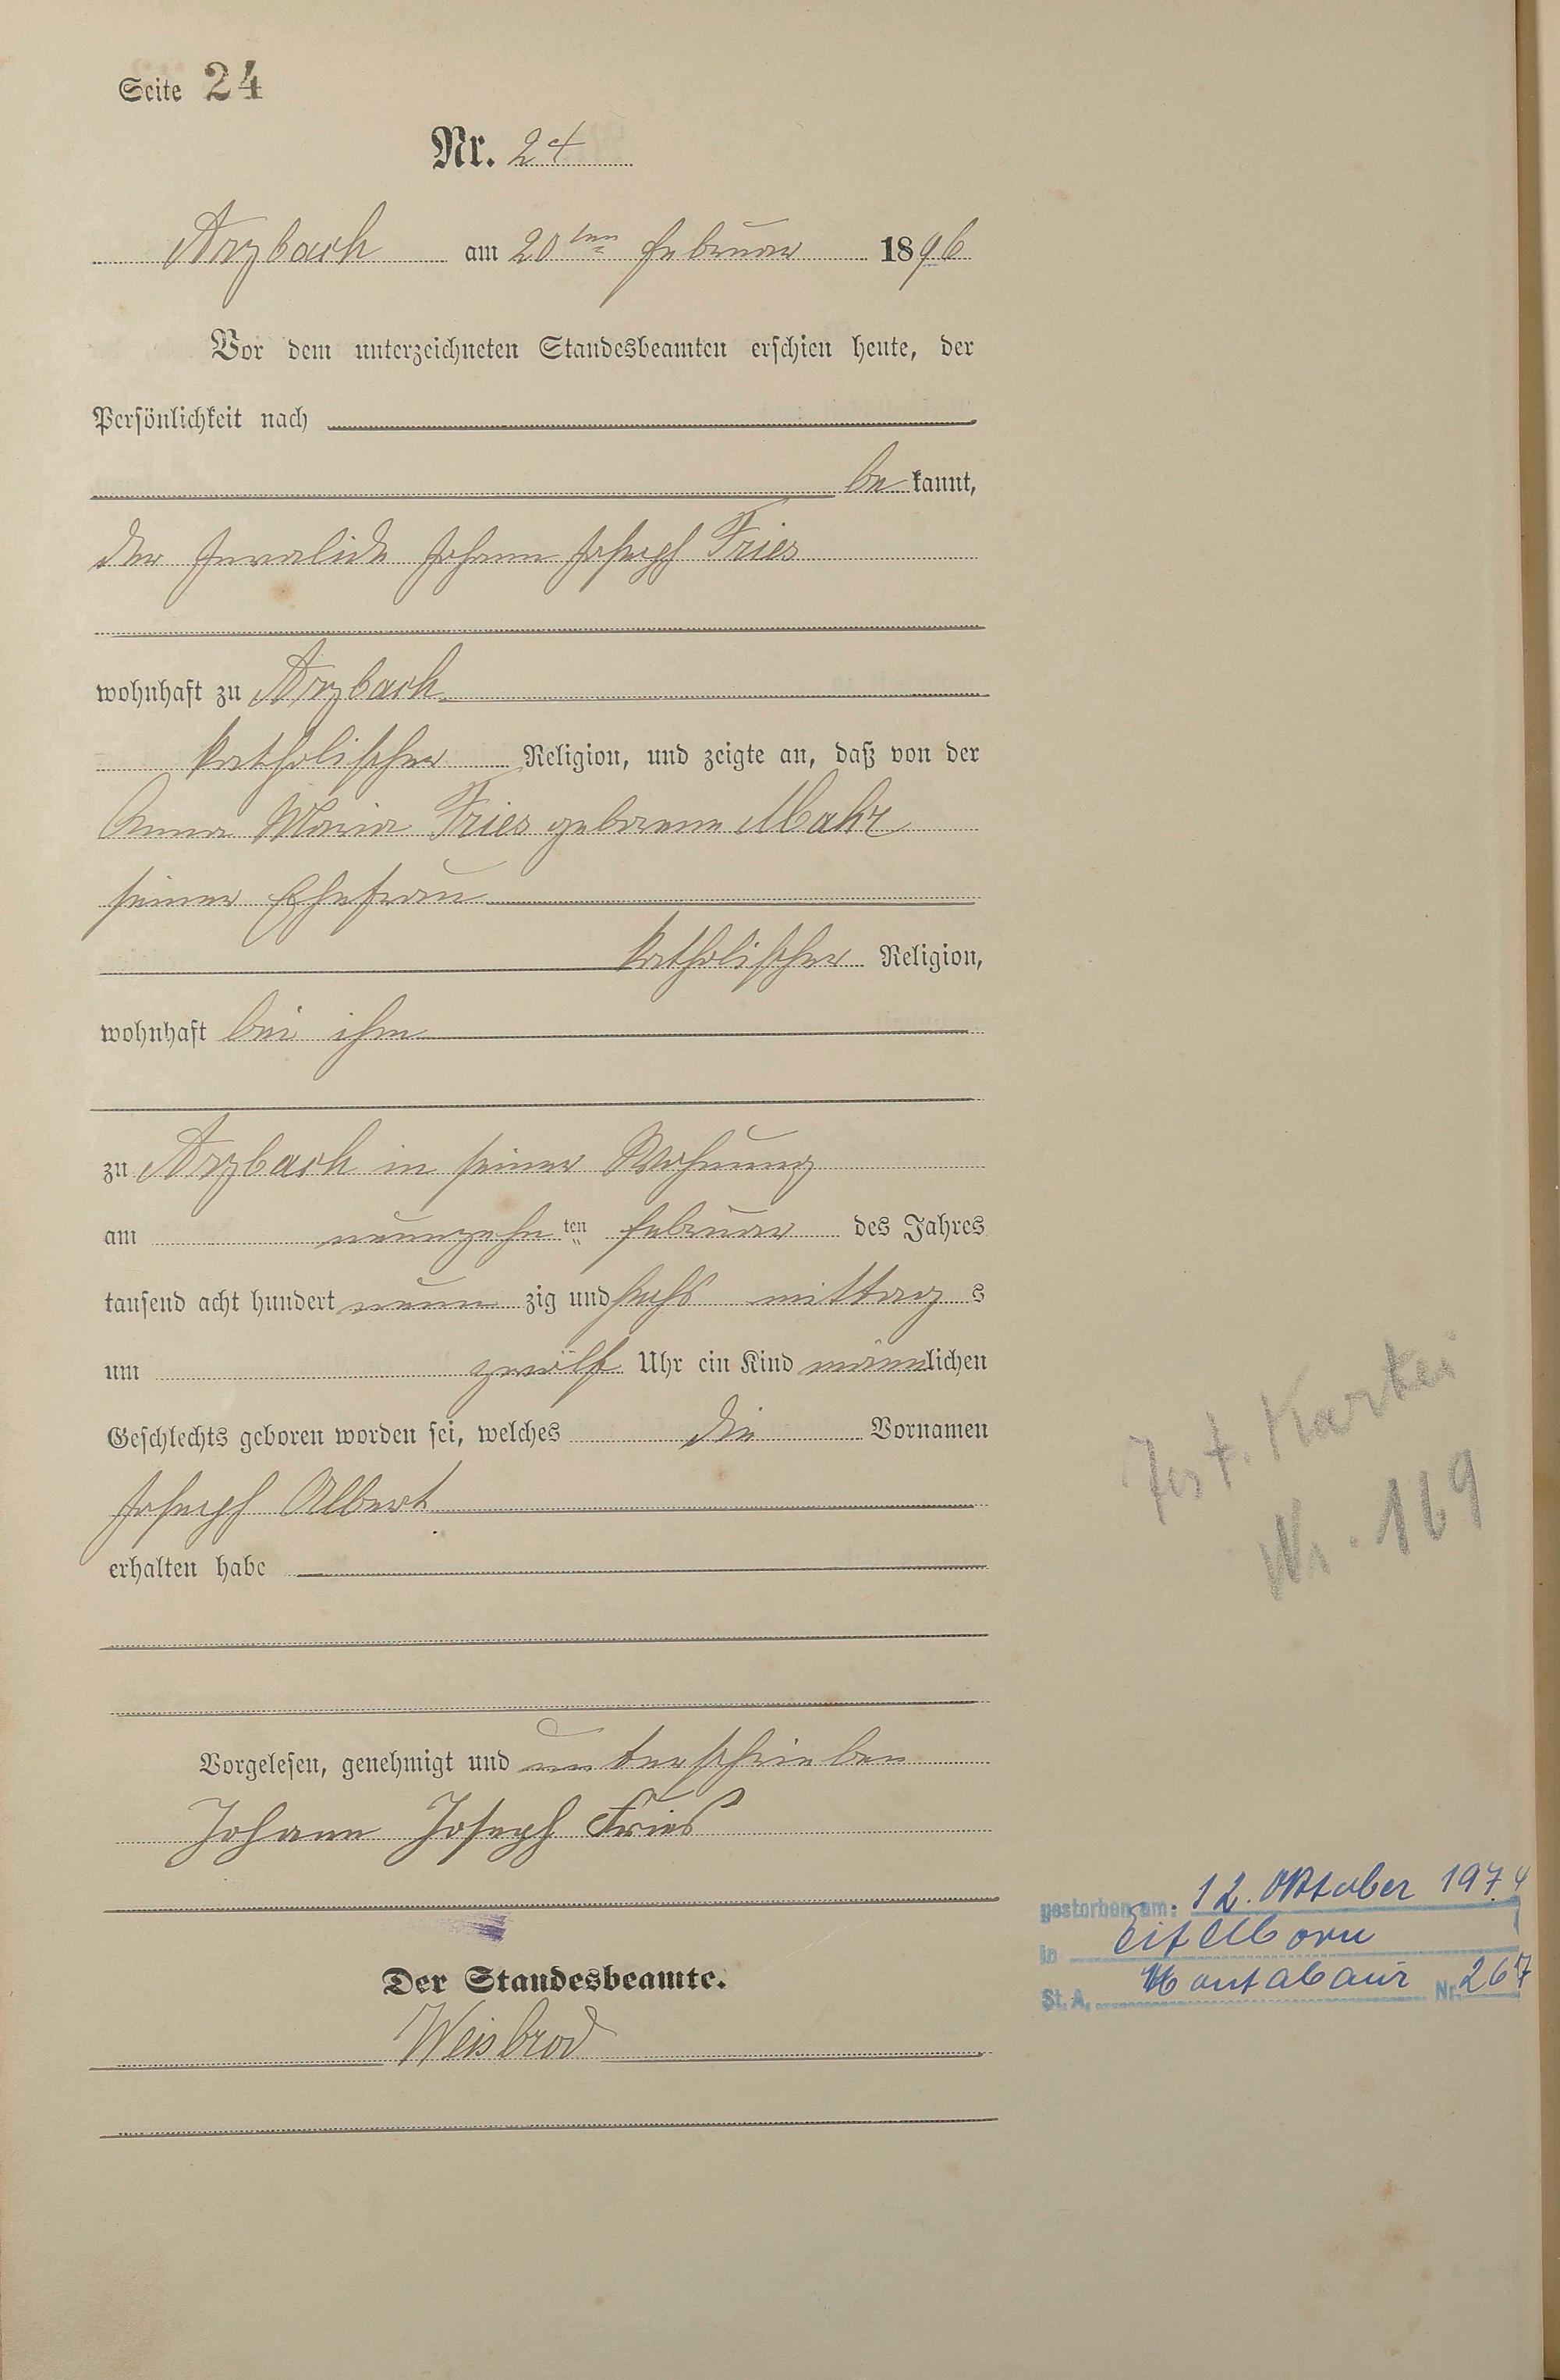 Seite 24
Nr. 24
Arzbach am 20ten Februar 1896
Vor dem unterzeichneten Standesbeamten erschien heute, der
Persönlichkeit nach
bekannt,
der Invalide Johann Joseph Fries
wohnhaft zu Arzbach
katholischer Religion, und zeigte an, daß von der
Anna Maria Fries geborene Mahr
seiner Ehefrau
katholischer Religion,
wohnhaft bei ihm
zu Arzbach in seiner Wohnung
am neunzehnten Februar des Jahres
tausend acht hundert neunzig und sechs mittags
um zwölf Uhr ein Kind männlichen
Geschlechts geboren worden sei, welches die Vornamen
Joseph Albert
erhalten habe
Vorgelesen, genehmigt und unterschrieben
Johann Joseph Fries
Der Standesbeamte.
Weisbrod
Kartei
Nr. 169
gestorben am: 12. Oktober 1974
in Eitelborn
St. A. Montabaur Nr. 267